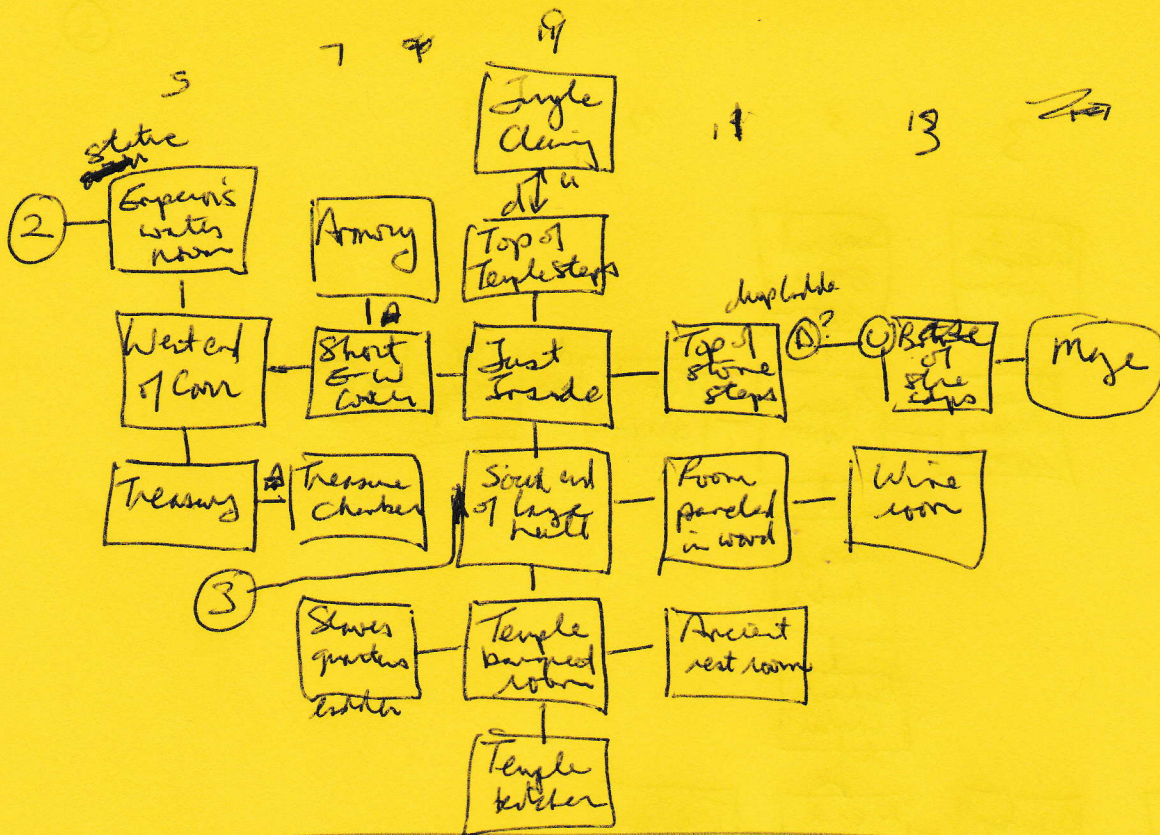 5
7
19
11
13
Jungle
Clearing
d
u
static
2
Emperor's
water
room
Armory
Top of
Temple Steps
drop ladder
West end
of Corr
Short
E-W
Just
Inside
Top of
stone
steps
D?
U
of
steps
Maze
Treasury
Treasure
chamber
South end
of large
hall
Room
paneled
in wood
Wine
room
3
Slaves
quarters
ladder
Temple
banquet
room
Ancient
rest room
Temple
kitchen